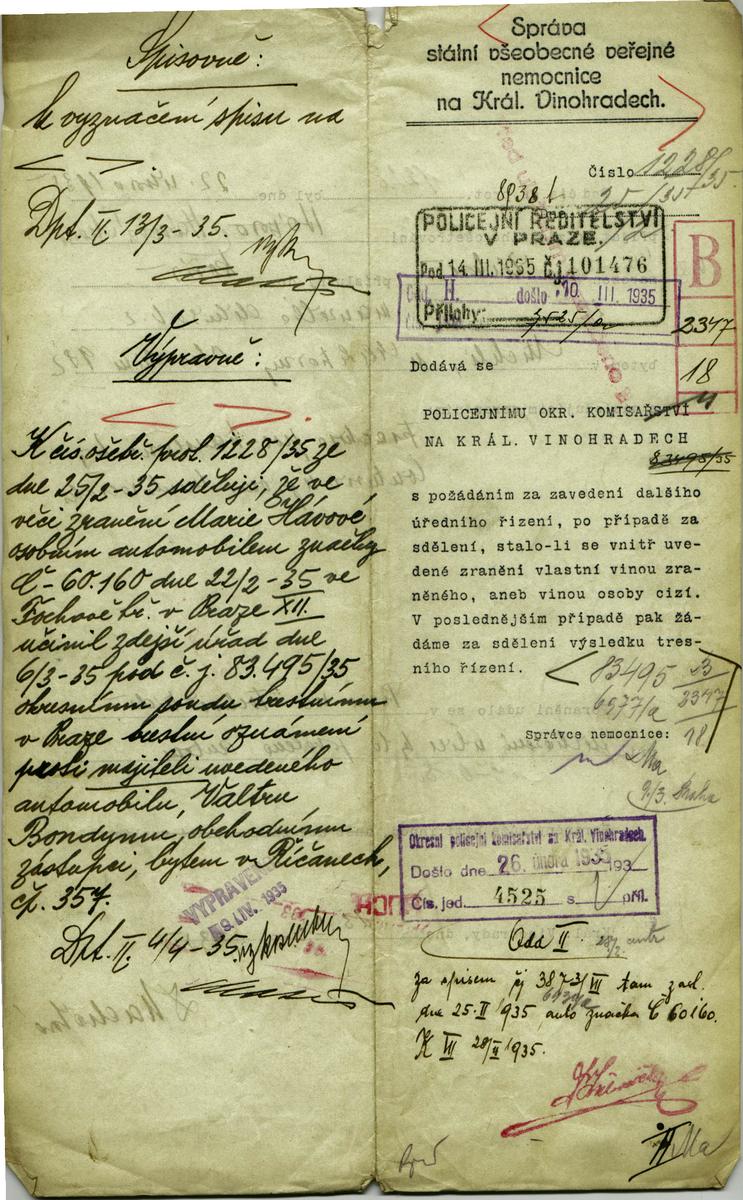 Spisovně:
k vyznačení spisu na
Dpt. II. 13/3 - 35.
Výpravně:
K čís. ošetř. prot. 1228/35 ze
dne 25/2 - 35 sděluji, že ve
věci zranění Marie Hávové
osobním automobilem značky
Č - 60.160 dne 22/2 - 35 ve
Fochově tř. v Praze XII
učinil zdejší úřad dne
6/3 - 35 pod č. j. 83.495/35
okresnímu soudu trestnímu
v Praze trestní oznámení
proti majiteli uvedeného
automobilu, Valtru
Bondymu, obchodnímu
zástupci, bytem v Říčanech,
čp. 357.
VYPRAVENO
9. IV. 1935
Dpt. II. 4/4 - 35.
Správa
státní všeobecné veřejné
nemocnice
na Král. Vinohradech.
Číslo 1228/35
25/2 35
8938
POLICEJNÍ ŘEDITELSTVÍ
V PRAZE.
Pod. 14 III. 1935 č.j 101476
Přílohy:
došlo 10. III. 1935
B
2347
18
Dodává se
POLICEJNÍMU OKR. KOMISAŘSTVÍ
NA KRÁL. VINOHRADECH
83495/35
s požádáním za zavedení dalšího
úředního řízení, po případě za
sdělení, stalo-li se vnitř uve-
dené zranění vlastní vinou zra-
něného, aneb vinou osoby cizí.
V poslednějším případě pak žá-
dáme za sdělení výsledku tres-
tního řízení.
83495
6977/a
2347
18
Správce nemocnice:
9/3.
Okresní policejní komisařství na Král. Vinohradech.
Došlo dne 26. února 1935 193
Čís. jed. 4525 s 1 příl.
Odd II.
za spisem čj 3873/III tam zasl.
dne 25.II 1935, auto značka Č 60160.
K III 28/II 1935.
II